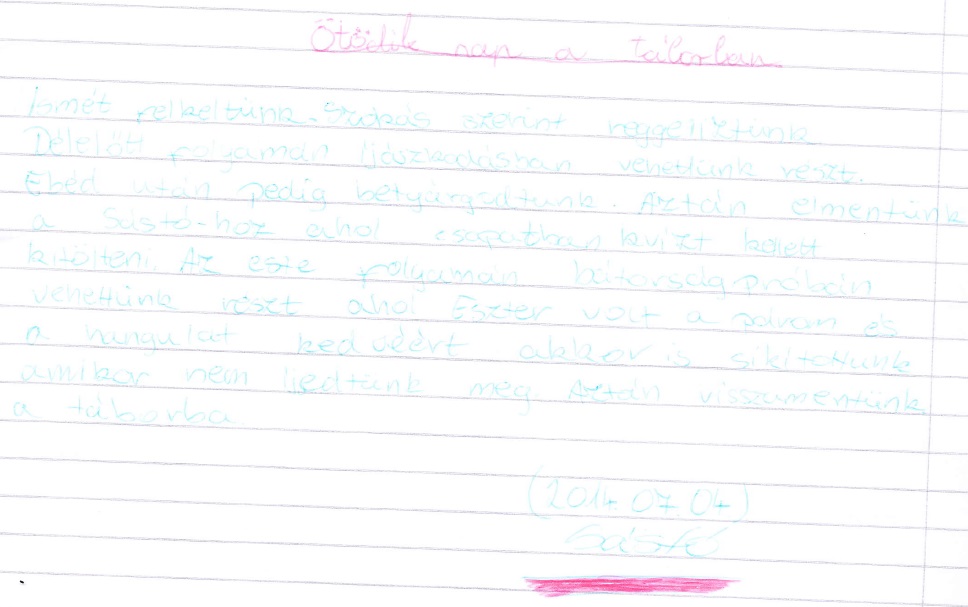 Ötödik nap a táborban
Ismét felkeltünk. Szokás szerint reggeliztünk
Délelőtt folyamán íjászkodásban vehettünk részt.
Ebéd után pedig betyárgudtunk. Aztán elmentünk
a Sástó-hoz ahol csapatban kvízt kelett
kitölteni. Az este folyamán bátorság próbán
vehettünk részt ahol Eszter volt a párom és
a hangulat kedvéért akkor is sikítottunk
amikor nem ijedtünk meg Aztán visszamentünk
a táborba
(2014.07.04)
Sástó